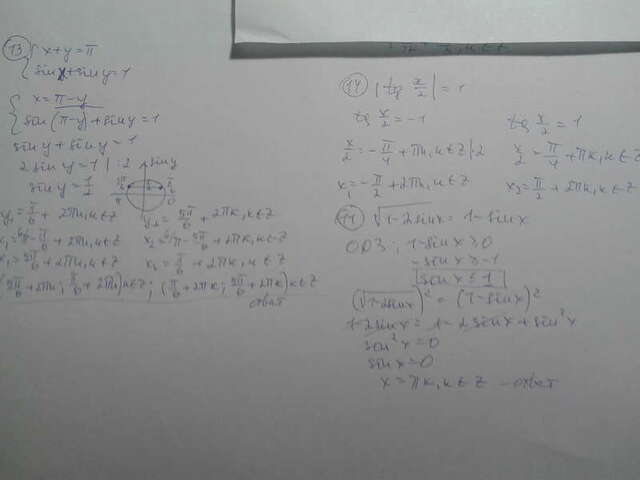 13) { x+y=π
sinx+siny=1
{ x=π-y
sin(π-y)+siny=1
siny+siny=1
2siny=1 | :2
siny=1/2
siny
5π/6 π/6
π 0
y₁=π/6+2πn, n∈Z y₂=5π/6+2πk, k∈Z
x₁=π-π/6+2πn, n∈Z x₂=π-5π/6+2πk, k∈Z
x₁=5π/6+2πn, n∈Z x₂=π/6+2πk, k∈Z
(5π/6+2πn; π/6+2πn) n∈Z; (π/6+2πk; 5π/6+2πk) k∈Z
ответ
14) |tg x/2|=1
tg x/2=-1 tg x/2=1
x/2=-π/4+πn, n∈Z |·2 x/2=π/4+πk, k∈Z
x₁=-π/2+2πn, n∈Z x₂=π/2+2πk, k∈Z
11) √1-2sinx=1-sinx
ОДЗ: 1-sinx≥0
-sinx≥-1
sinx≤1
(√1-2sinx)²=(1-sinx)²
1-2sinx=1-2sinx+sin²x
sin²x=0
sinx=0
x=πk, k∈Z -ответ